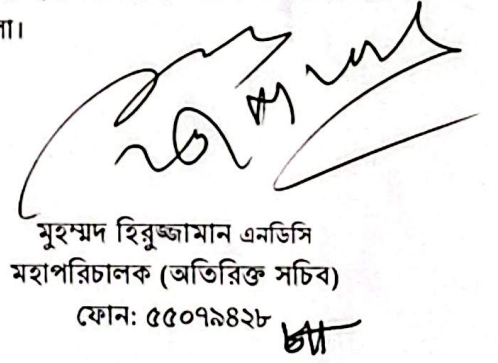 লা।
মুহম্মদ হিরুজ্জামান এনডিসি
মহাপরিচালক (অতিরিক্ত সচিব)
ফোন: ৫৫০৭৯৪২৮